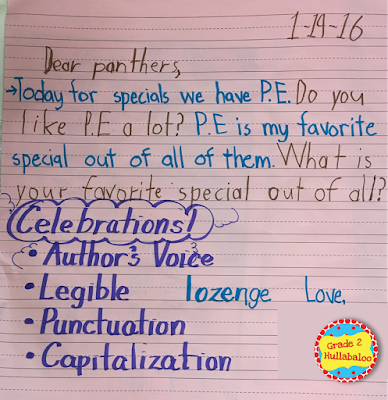 1-19-16
Dear panthers,
→Today for specials we have P.E. Do you
like P.E a lot? P.E is my favorite
special out of all of them. What is
your favorite special out of all?
Celebrations!
• Author's Voice
• Legible lozenge Love,
• Punctuation
• Capitalization
Grade 2
Hullabaloo